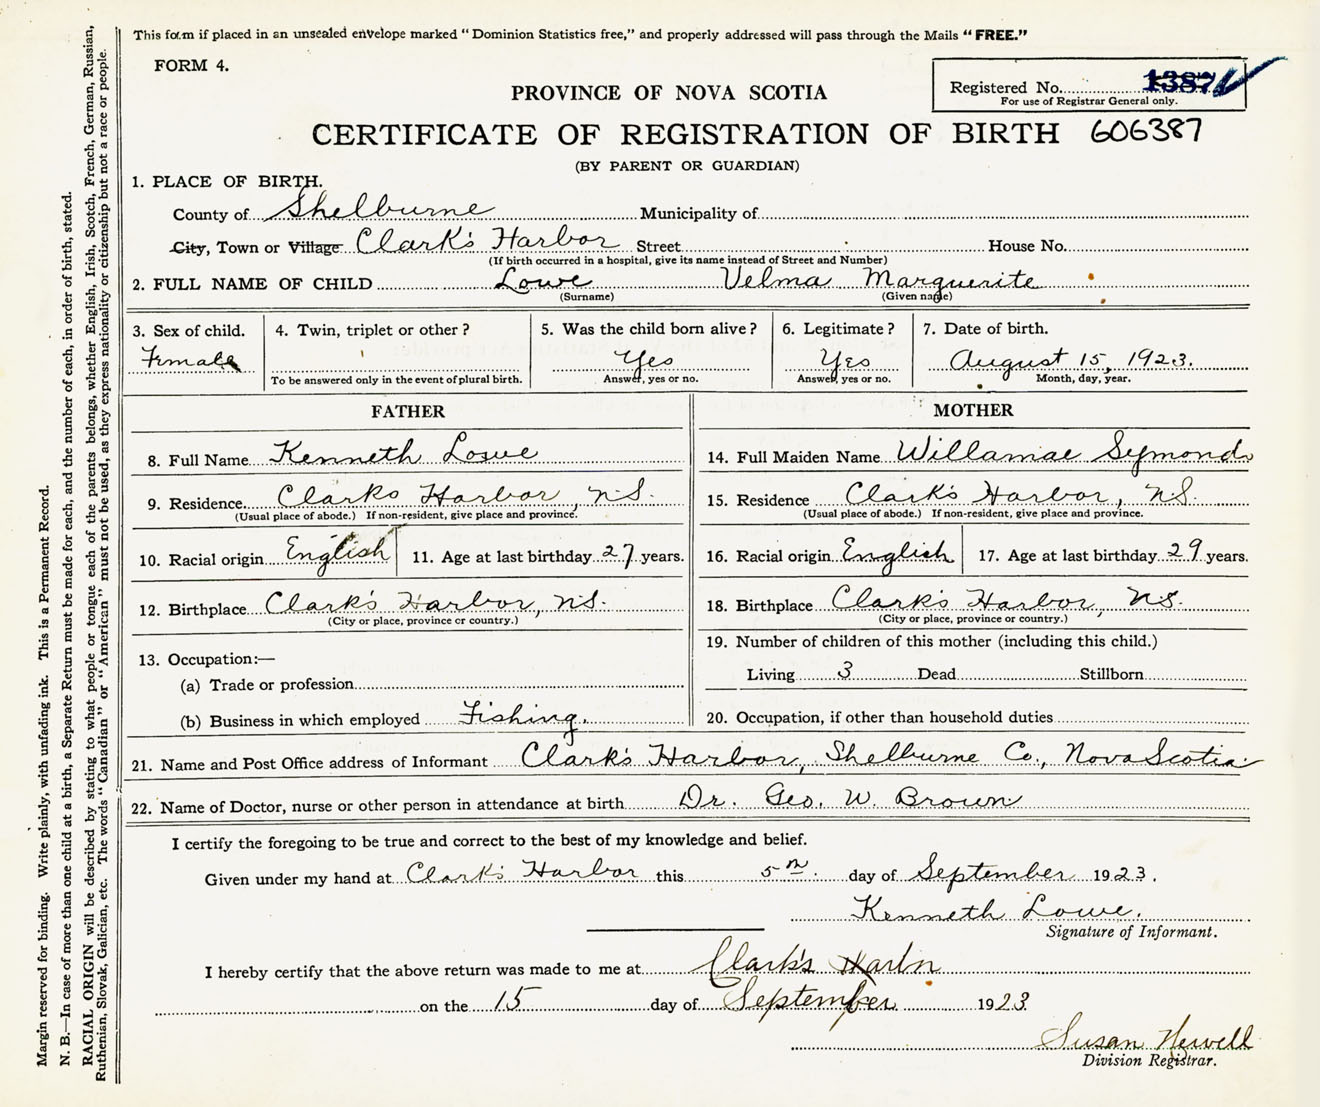 This form if placed in an unsealed envelope marked "Dominion Statistics free," and properly addressed will pass through the Mails "FREE."
FORM 4.
Registered No. 1387
For use of Registrar General only.
PROVINCE OF NOVA SCOTIA
CERTIFICATE OF REGISTRATION OF BIRTH 606387
(BY PARENT OR GUARDIAN)
1. PLACE OF BIRTH.
County of Shelburne Municipality of
City, Town or Village Clark's Harbor Street House No.
(If birth occurred in a hospital, give its name instead of Street and Number)
2. FULL NAME OF CHILD Lowe Velma Marguerite
(Surname) (Given name)
3. Sex of child. 4. Twin, triplet or other? 5. Was the child born alive? 6. Legitimate? 7. Date of birth.
Female Yes Yes August 15, 1923.
To be answered only in the event of plural birth. Answer, yes or no. Answer, yes or no. Month, day, year.
FATHER
8. Full Name Kenneth Lowe
9. Residence Clarks Harbor, N.S.
(Usual place of abode.) If non-resident, give place and province.
10. Racial origin English 11. Age at last birthday 27 years.
12. Birthplace Clark's Harbor, N.S.
(City or place, province or country.)
13. Occupation:—
(a) Trade or profession
(b) Business in which employed Fishing.
MOTHER
14. Full Maiden Name Willamae Symonds
15. Residence Clark's Harbor, N.S.
(Usual place of abode.) If non-resident, give place and province.
16. Racial origin English 17. Age at last birthday 29 years.
18. Birthplace Clark's Harbor, N.S.
(City or place, province or country.)
19. Number of children of this mother (including this child.)
Living 3 Dead Stillborn
20. Occupation, if other than household duties
21. Name and Post Office address of Informant Clark's Harbor, Shelburne Co., Nova Scotia
22. Name of Doctor, nurse or other person in attendance at birth Dr. Geo. W. Brown
I certify the foregoing to be true and correct to the best of my knowledge and belief.
Given under my hand at Clark's Harbor this 5th day of September 1923.
Kenneth Lowe.
Signature of Informant.
I hereby certify that the above return was made to me at Clark's Harbor
on the 15 day of September 1923
Susan Newell
Division Registrar.
Margin reserved for binding. Write plainly, with unfading ink. This is a Permanent Record.
N. B.—In case of more than one child at a birth, a Separate Return must be made for each, and the number of each, in order of birth, stated.
RACIAL ORIGIN will be described by stating to what people or tongue each of the parents belongs, whether English, Irish, Scotch, French, German, Russian,
Ruthenian, Slovak, Galician, etc. The words "Canadian" or "American" must not be used, as they express nationality or citizenship but not a race or people.